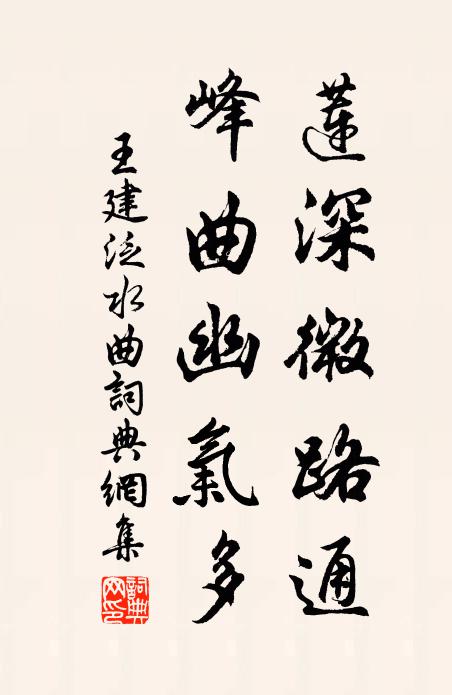 蓮深微路通
峰曲幽氣多
王建泛水曲詞典網集
詞典網印